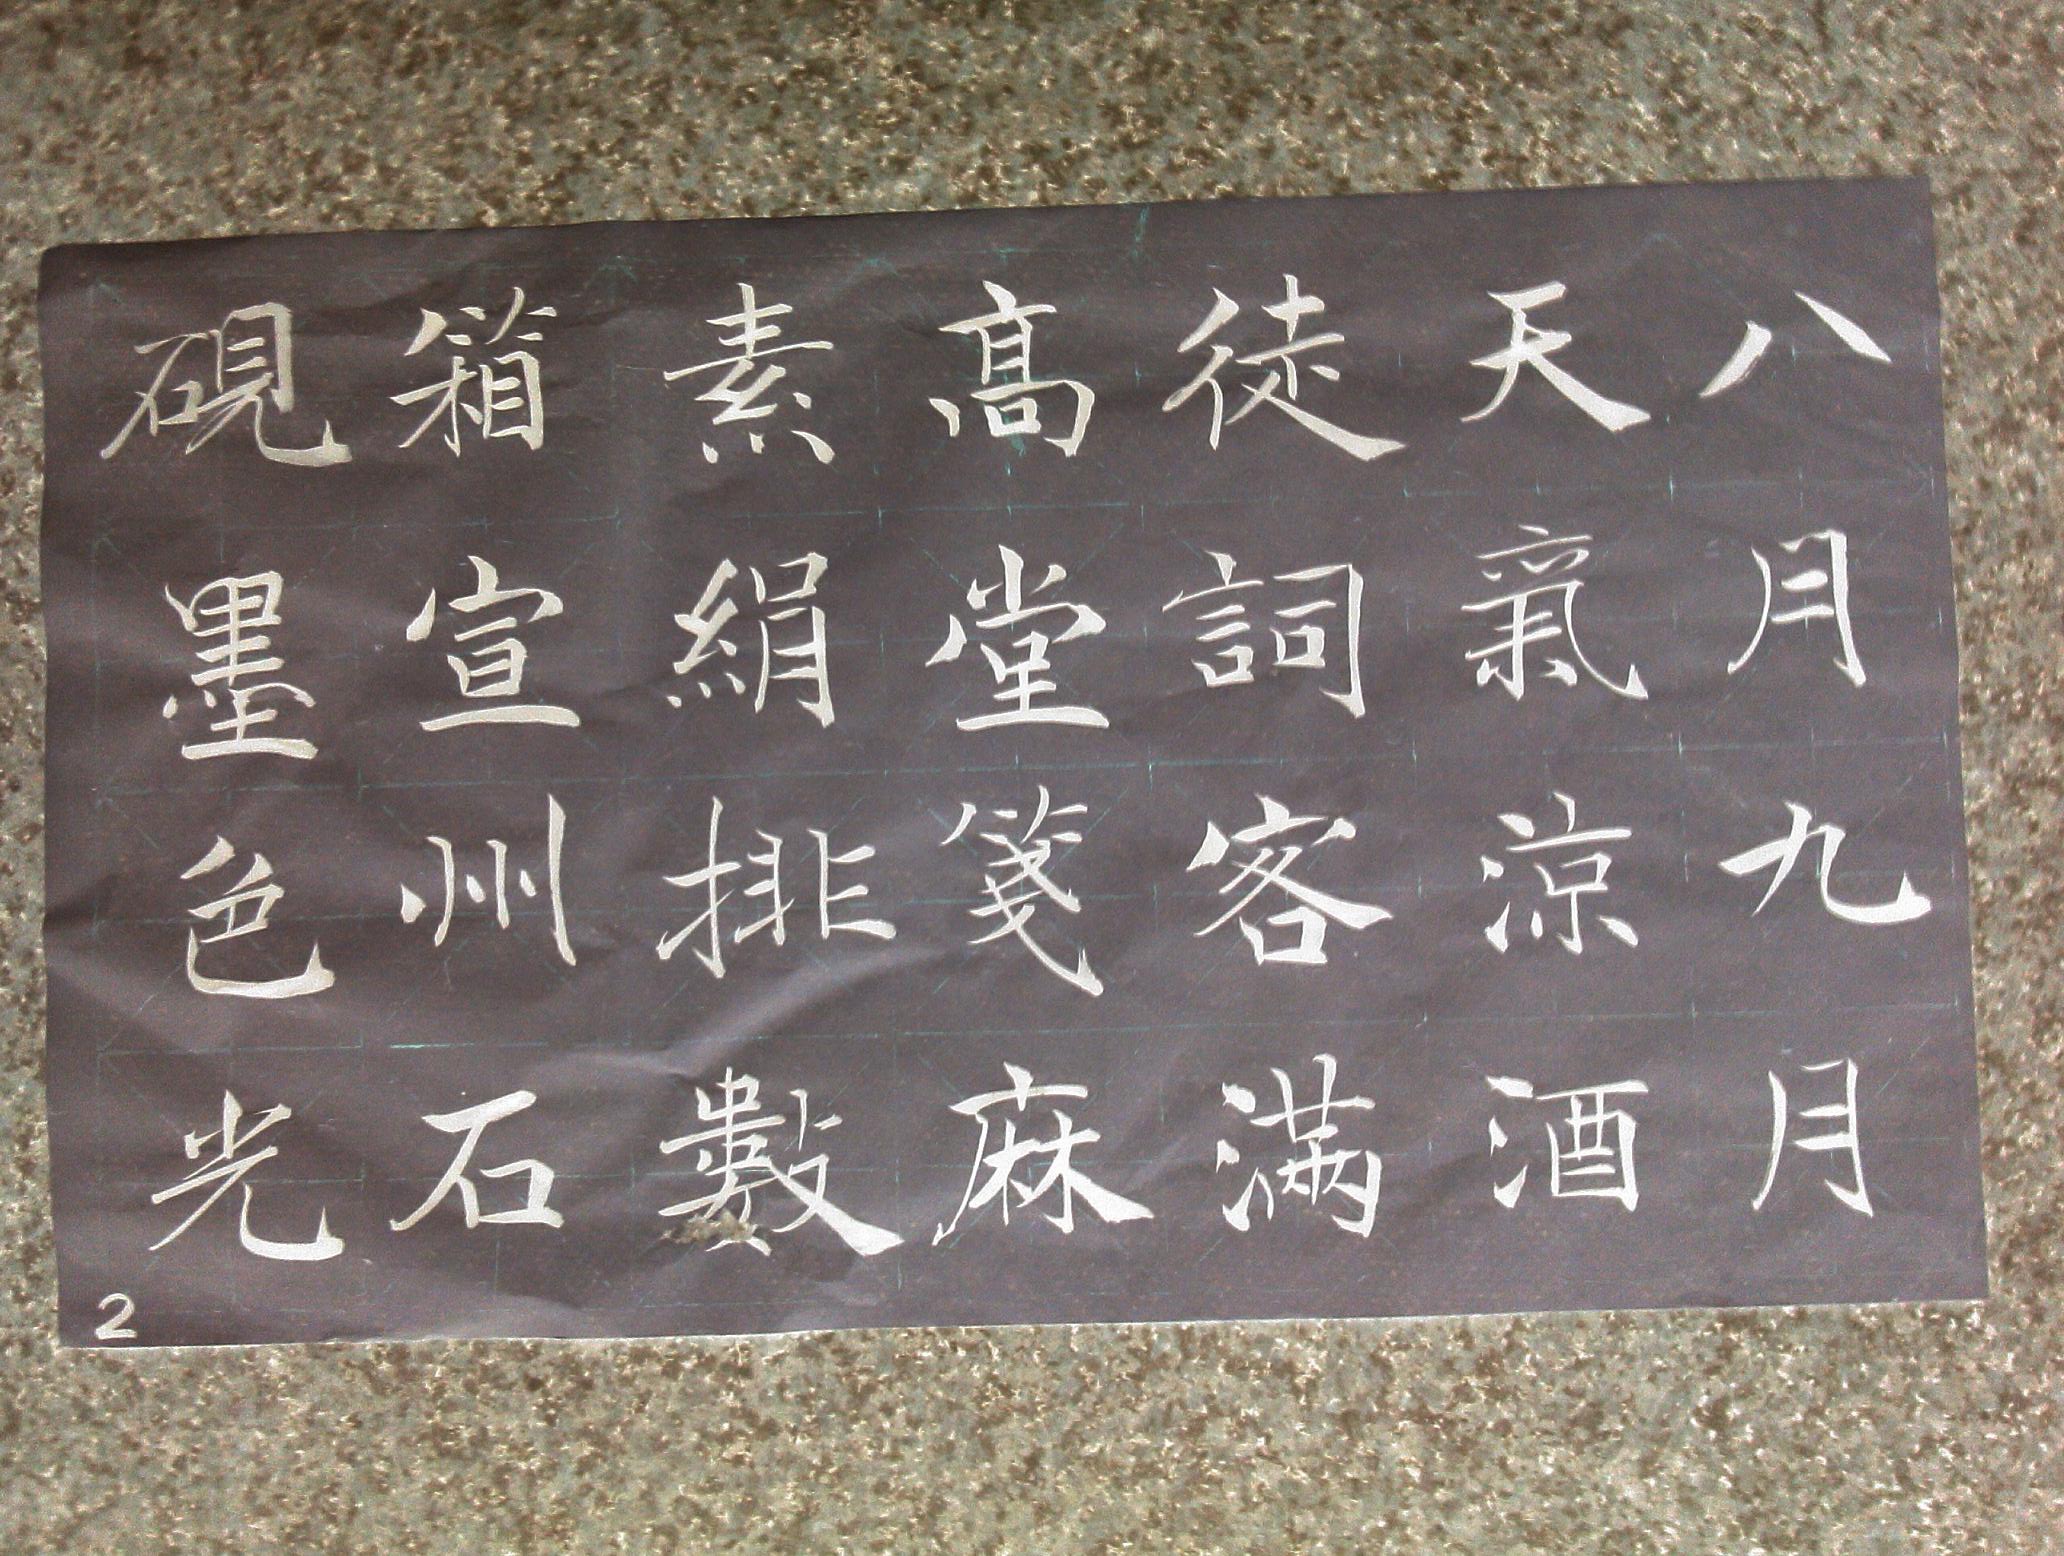 八月九月
天氣涼酒
徒詞客滿
高堂箋麻
素絹排數
箱宣州石
硯墨色光
2